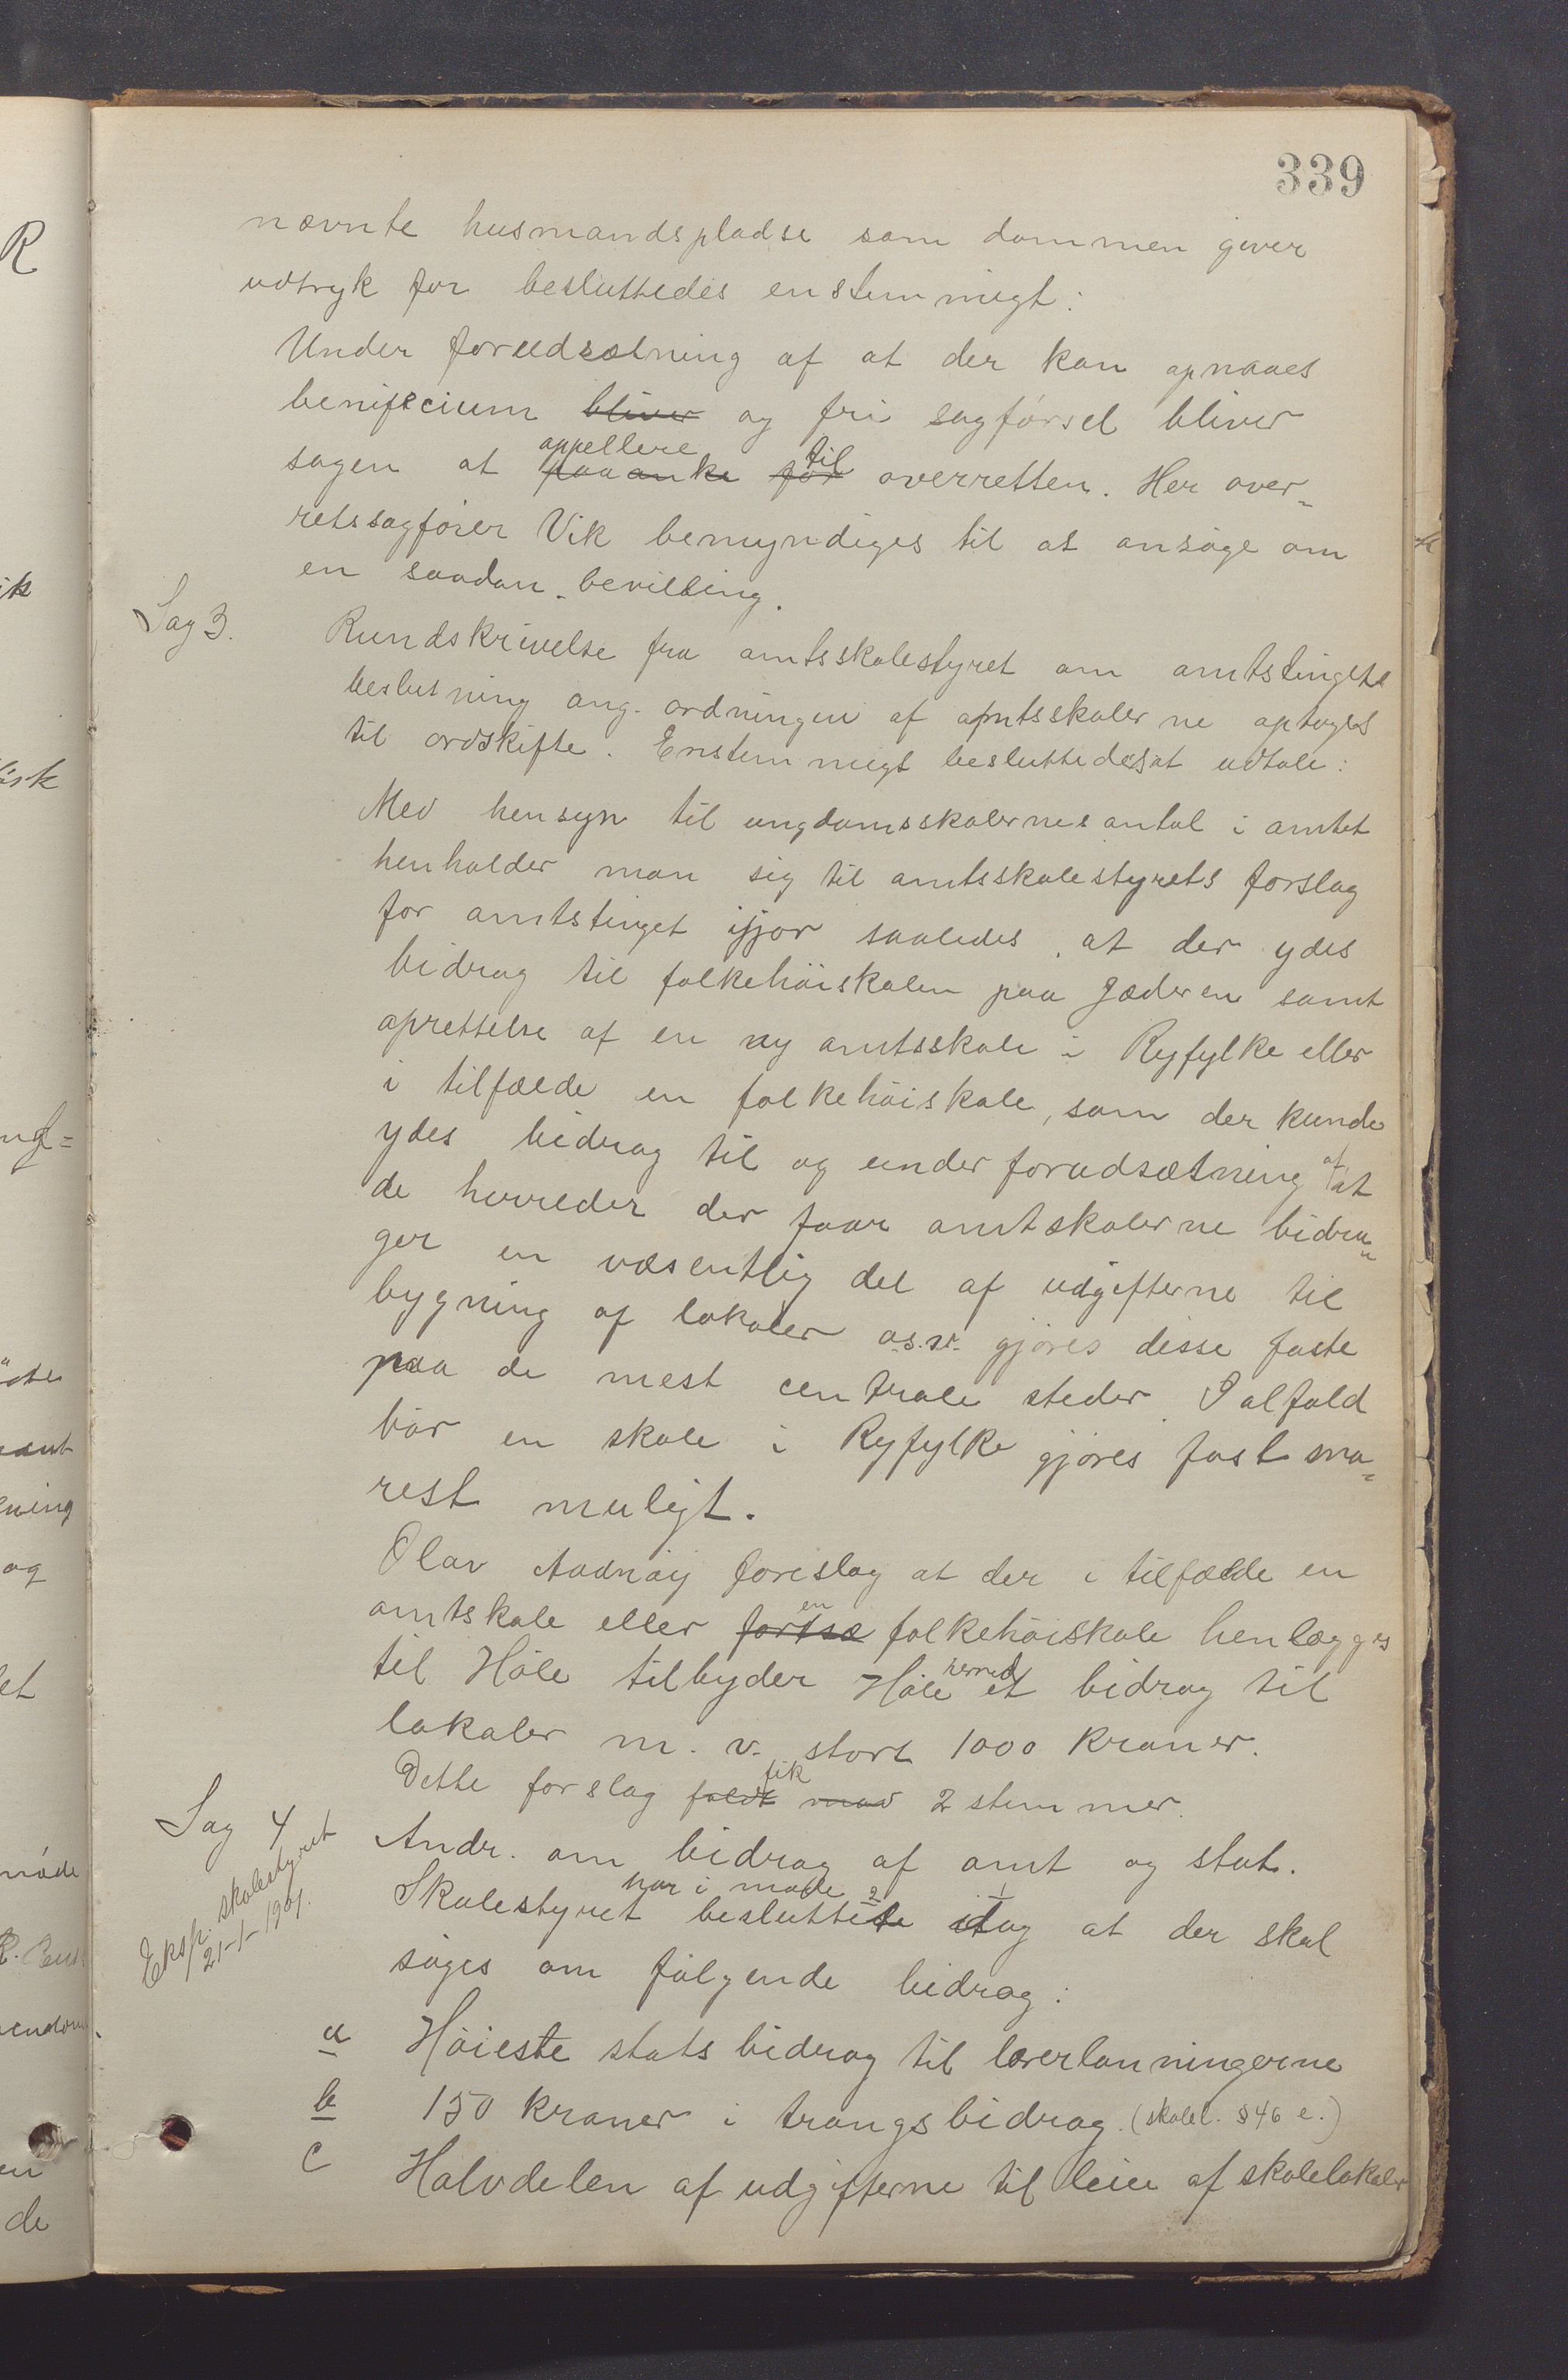 339
nævnte husmandspladse som dommen giver
udtryk for besluttedes enstemmigt:
Under forudsætning af at der kan opnaaes
benificium bliver og fri sagførsel bliver
appellere til
sagen at paaanke for overretten. Her over-
retssagfører Vik bemyndiges til at ansøge om
en saadan bevilling.
Sag 3.
Rundskrivelse fra amtsskolestyret om amtstingets
beslutning ang. ordningen af amtsskolerne optoges
til ordskifte. Enstemmigt besluttedes at udtale:
Med hensyn til ungdomsskolernes antal i amtet
henholder man sig til amtsskolestyrets forslag
for amtstinget ifjor saaledes, at der ydes
bidrag til folkehøiskolen paa Jæderen samt
oprettelse af en ny amtsskole i Ryfylke eller
i tilfælde en folkehøiskole, som der kunde
ydes bidrag til og under forudsætning af at
de herreder der faar amtskolerne bidra-
ger en væsentlig del af udgifterne til
bygning af lokaler o.s.v. gjøres disse faste
paa de mest centrale steder. Ialfald
bør en skole i Ryfylke gjøres fast sna-
rest muligt.
Olav Aadnøy foreslog at der i tilfælde en
amtskole eller fortsæ en folkehøiskole henlægges
til Høle tilbyder Høle herred et bidrag til
lokaler m. v. stort 1000 kroner.
Dette forslag faldt med fik 2 stemmer.
Sag 4
Andr. om bidrag af amt og stat.
Eksp. skolestyret
21-1-1901.
har i møde 2 1
Skolestyret besluttede idag at der skal
søges om følgende bidrag:
a Høieste statsbidrag til lærerlønningerne
b 150 kroner i trangsbidrag. (skolel. § 46 e.)
c Halvdelen af udgifterne til leie af skolelokaler